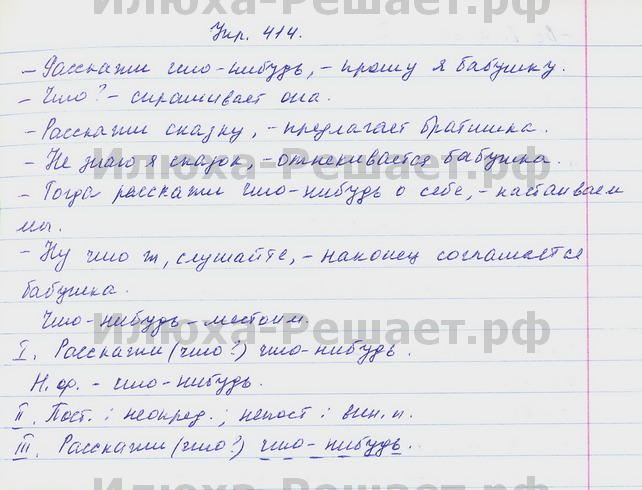 Илюха-Решает.рф
Упр. 414.
– Расскажи что-нибудь, – прошу я бабушку.
– Что? – спрашивает она.
– Расскажи сказку, – предлагает братишка.
– Не знаю я сказок, – отнекивается бабушка.
– Тогда расскажи что-нибудь о себе, – настаиваем
мы.
– Ну что ж, слушайте, – наконец соглашается
бабушка.
Что-нибудь – местоим.
Илюха-Решает.рф
I. Расскажи (что?) что-нибудь.
Н.ф. – что-нибудь.
II. Пост.: неопред.; непост.: вин. п.
III. Расскажи (что?) что-нибудь.
Илюха-Решает.рф